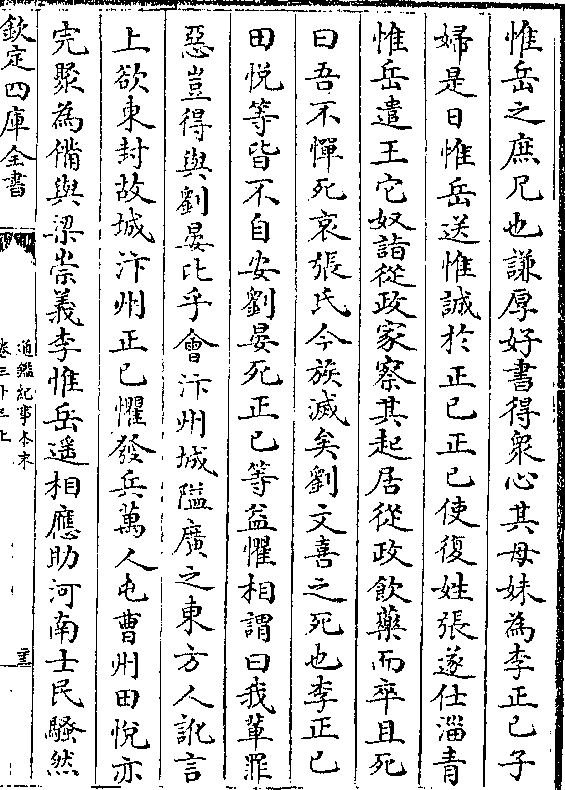 惟岳之庶兄也謙厚好書得衆心其母妹為李正已子
婦是日惟岳送惟誠於正已正已使復姓張遂仕淄青
惟岳遣王它奴詣從政家察其起居從政飲藥而卒且死
曰吾不憚死哀張氏今族滅矣劉文喜之死也李正已
田悅等皆不自安劉晏死正已等益懼相謂曰我輩罪
惡豈得與劉晏比乎會汴州城隘廣之東方人訛言
上欲東封故城汴州正已懼發兵萬人屯曹州田悅亦
完聚為備與梁崇義李惟岳遥相應助河南士民騷然
欽定四庫全書
通鑑紀事本末